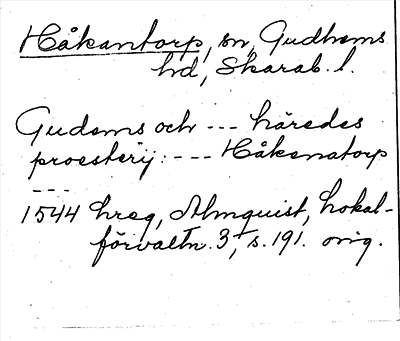 Håkantorp, sn, Gudhems
hd, Skarab. l.
Gudems och --- häredes
proesterij: --- Håkanatorp
---
1544 hreg, Almquist, Lokal-
förvaltn. 3, s. 191. orig.